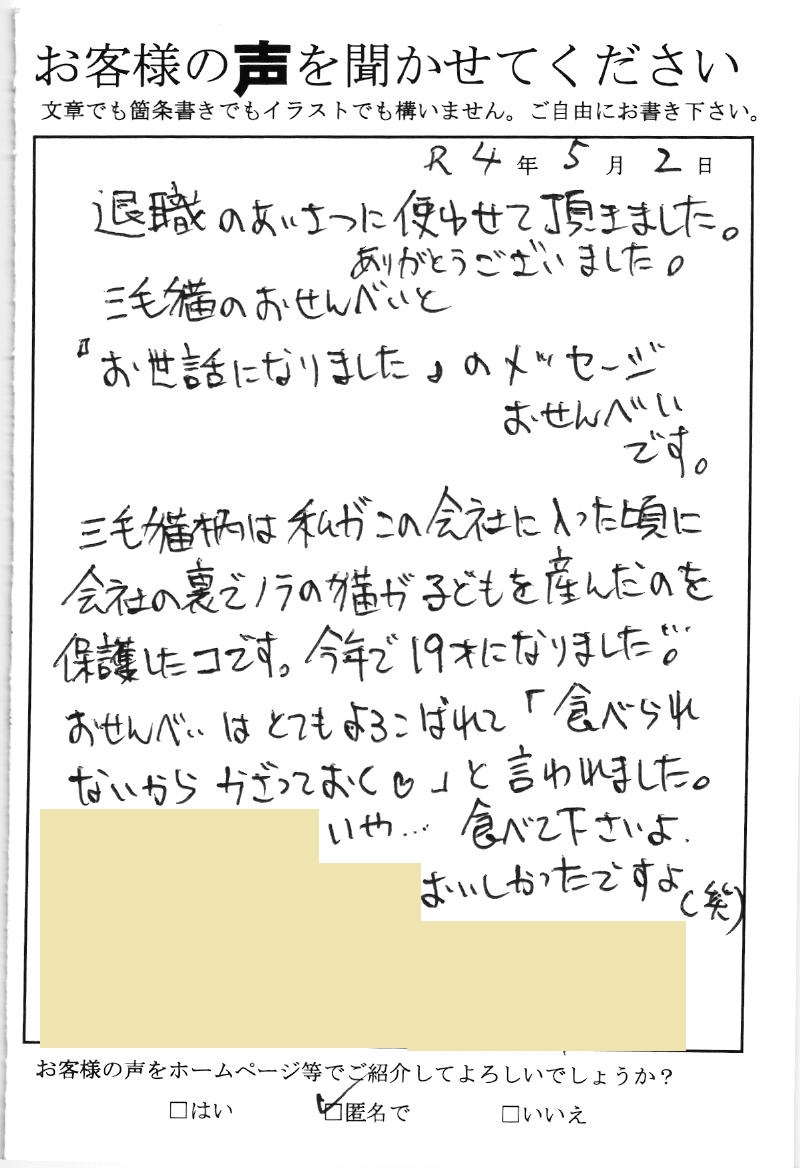 お客様の声を聞かせてください
文章でも箇条書きでもイラストでも構いません。ご自由にお書き下さい。
R4年5月2日
退職のあいさつに使わせて頂きました。
ありがとうございました。
三毛猫のおせんべいと
『お世話になりました』のメッセージ
おせんべい
です。
三毛猫柄は私がこの会社に入った頃に
会社の裏でノラの猫が子どもを産んだのを
保護したコです。今年で19才になりました。
おせんべぃはとてもよろこばれて「食べられ
ないからかざっておく♡」と言われました。
いや…食べて下さいよ.
おいしかったですよ(笑)
お客様の声をホームページ等でご紹介してよろしいでしょうか？
□はい ☑匿名で □いいえ